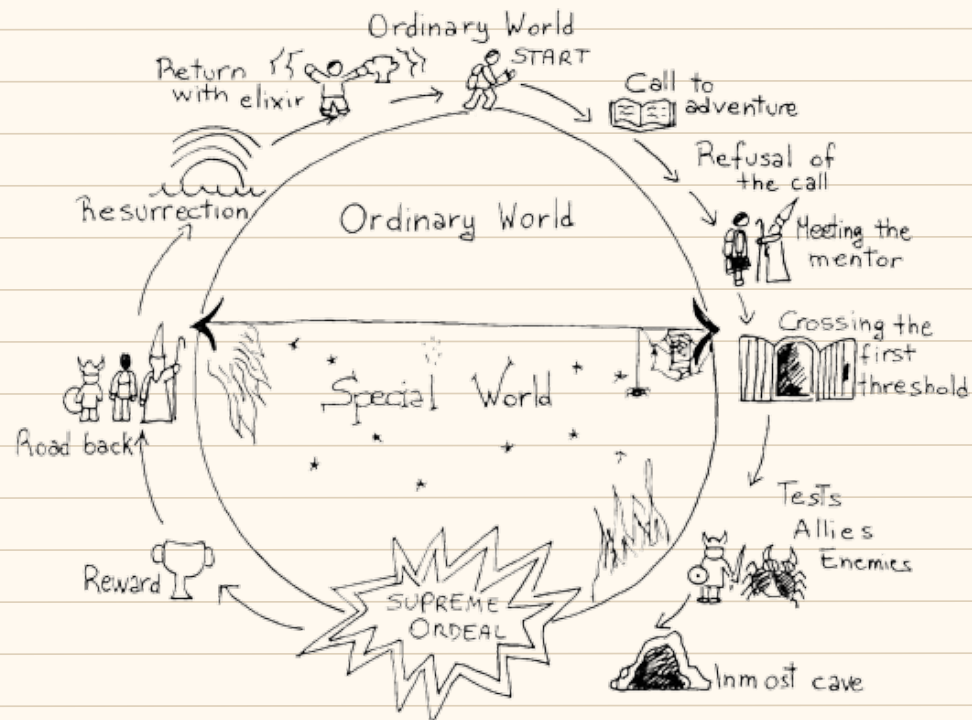 Ordinary World
START
Call to
adventure
Refusal of
the call
Meeting the
mentor
Crossing the
first
threshold
Tests
Allies
Enemies
Inmost cave
SUPREME
ORDEAL
Reward
Road back
Resurrection
Return
with elixir
Ordinary World
Special World